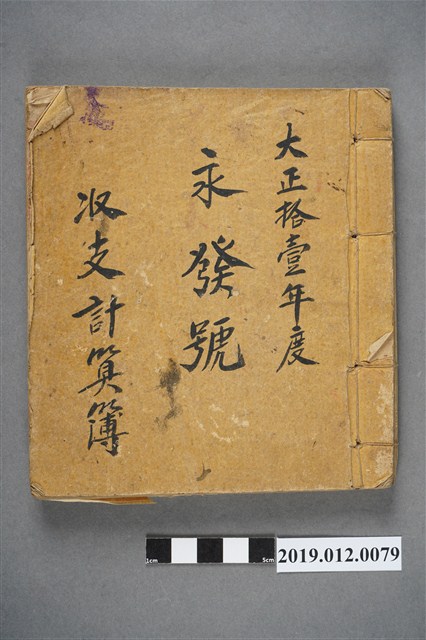 大正拾壹年度
永發號
收支計算簿
1cm
5cm
2019.012.0079